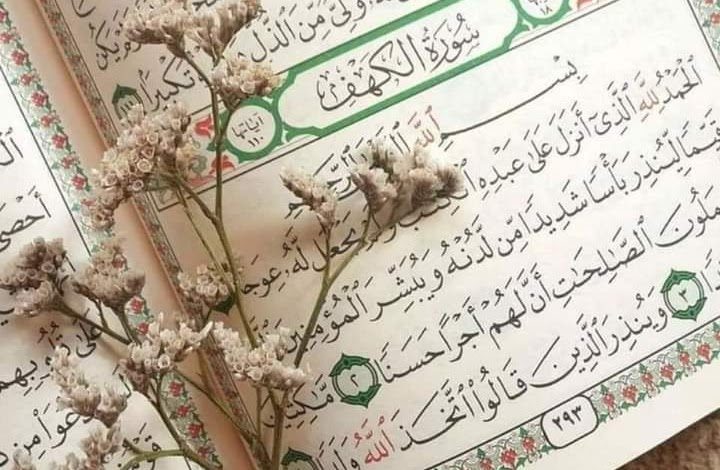 وَلِيٌّ مِّنَ الذُّلِّ
تَكْبِيرًا ١١١
سُورَةُ الكَهْفِ
آيَاتُهَا ١١٠
بِسْمِ اللَّهِ الرَّحْمَٰنِ الرَّحِيمِ
الْحَمْدُ لِلَّهِ الَّذِي أَنزَلَ عَلَىٰ عَبْدِهِ الْكِتَابَ وَلَمْ يَجْعَل لَّهُ عِوَجَا
قَيِّمًا لِّيُنذِرَ بَأْسًا شَدِيدًا مِّن لَّدُنْهُ وَيُبَشِّرَ الْمُؤْمِنِينَ
يَعْمَلُونَ الصَّالِحَاتِ أَنَّ لَهُمْ أَجْرًا حَسَنًا ٢ مَّاكِثِينَ
٣ وَيُنذِرَ الَّذِينَ قَالُوا اتَّخَذَ اللَّهُ وَلَدًا
٢٩٣
أَحْصَىٰ